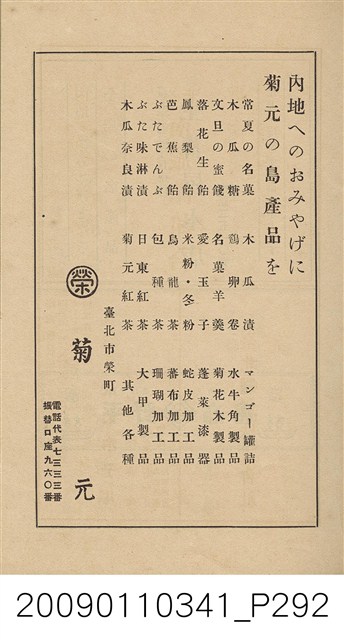 內地へのおみやげに
菊元の島產品を
常夏の名菓 木瓜漬 マンゴー罐詰
木瓜糖 鶏卵卷 水牛角製品
文旦の蜜餞 名菓羊羹 菊花木製品
落花生飴 愛玉子 蓬萊漆器
鳳梨飴 米粉・冬粉 蛇皮加工品
芭蕉飴 烏龍茶 蕃布加工品
ぶたでんぶ 包種茶 珊瑚加工品
ぶた味淋漬 日東紅茶 大甲製品
木瓜奈良漬 菊元紅茶 其他各種
臺北市榮町
榮 菊元
電話代表七三三三番
振替口座九六〇番
20090110341_P292